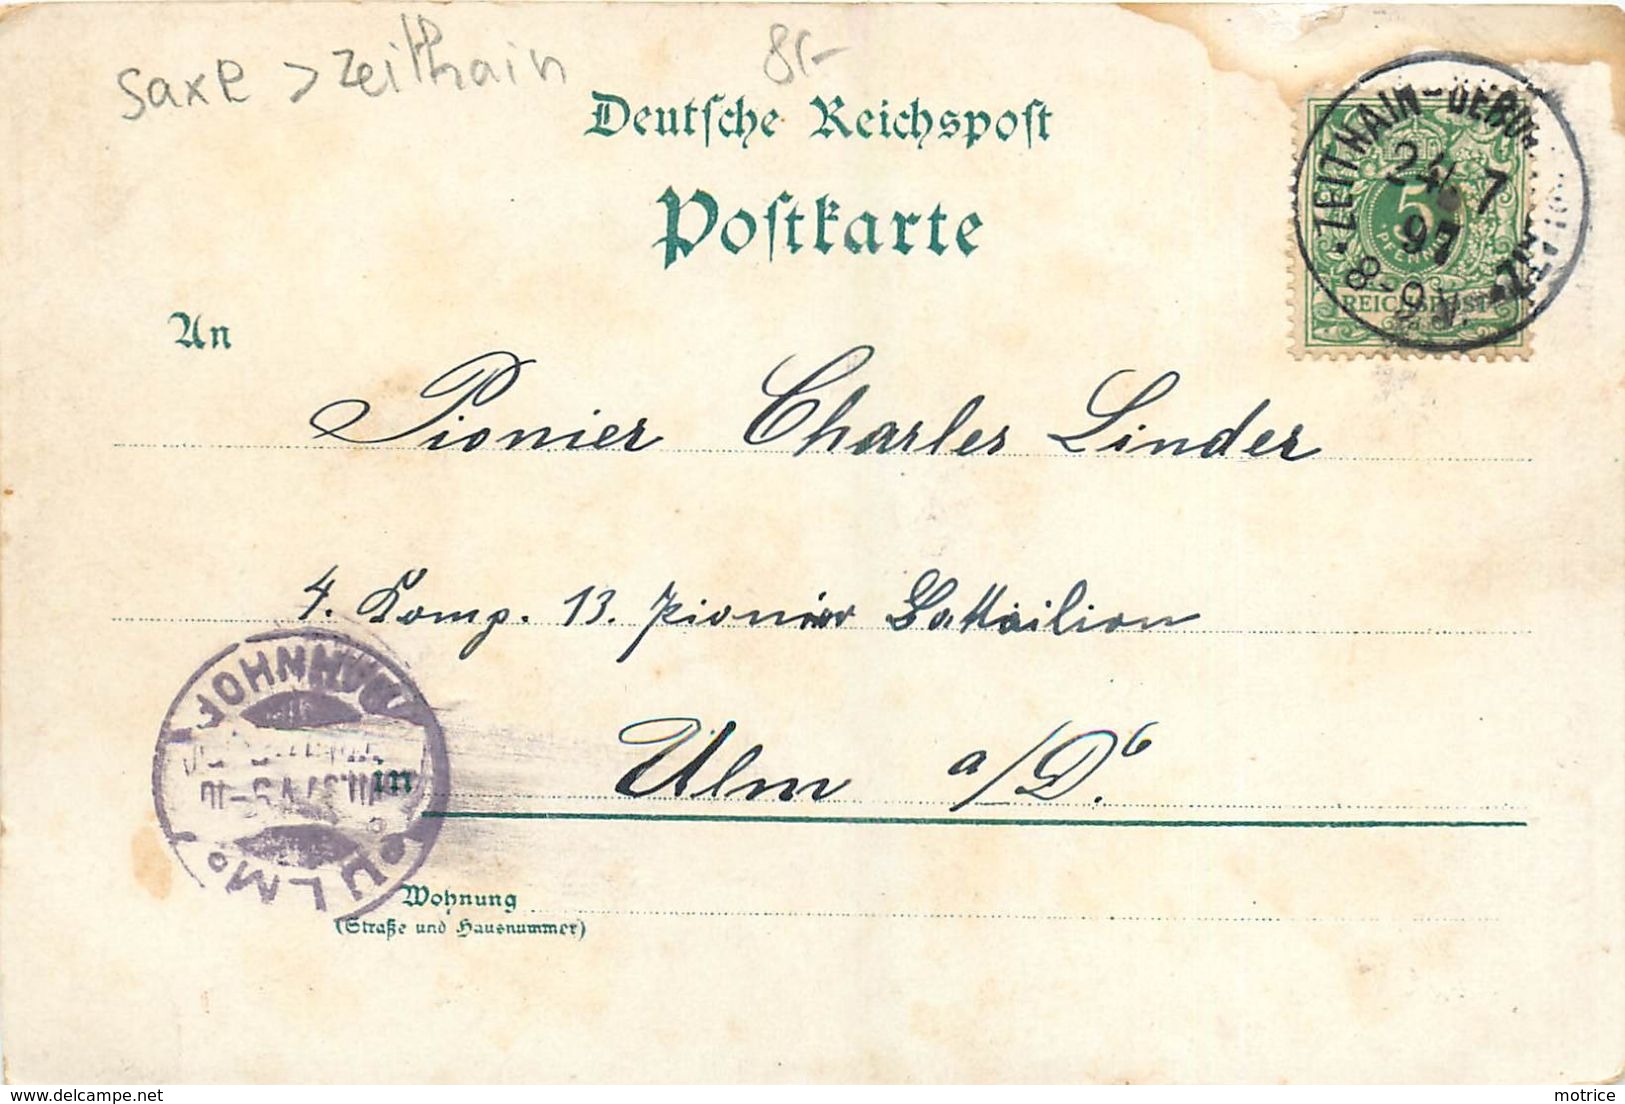 saxe > zeithain
85.-
Deutsche Reichspost
Postkarte
ZEITHAIN
24 7
97
8-9 V.
5
PFENNIG
REICHSPOST
An
Pionier Charles Linder
4. Komp. 13. Pionier Battailion
in Ulm a/D.
BAHNHOF
ULM
Wohnung
(Straße und Hausnummer)
delcampe.net
motrice